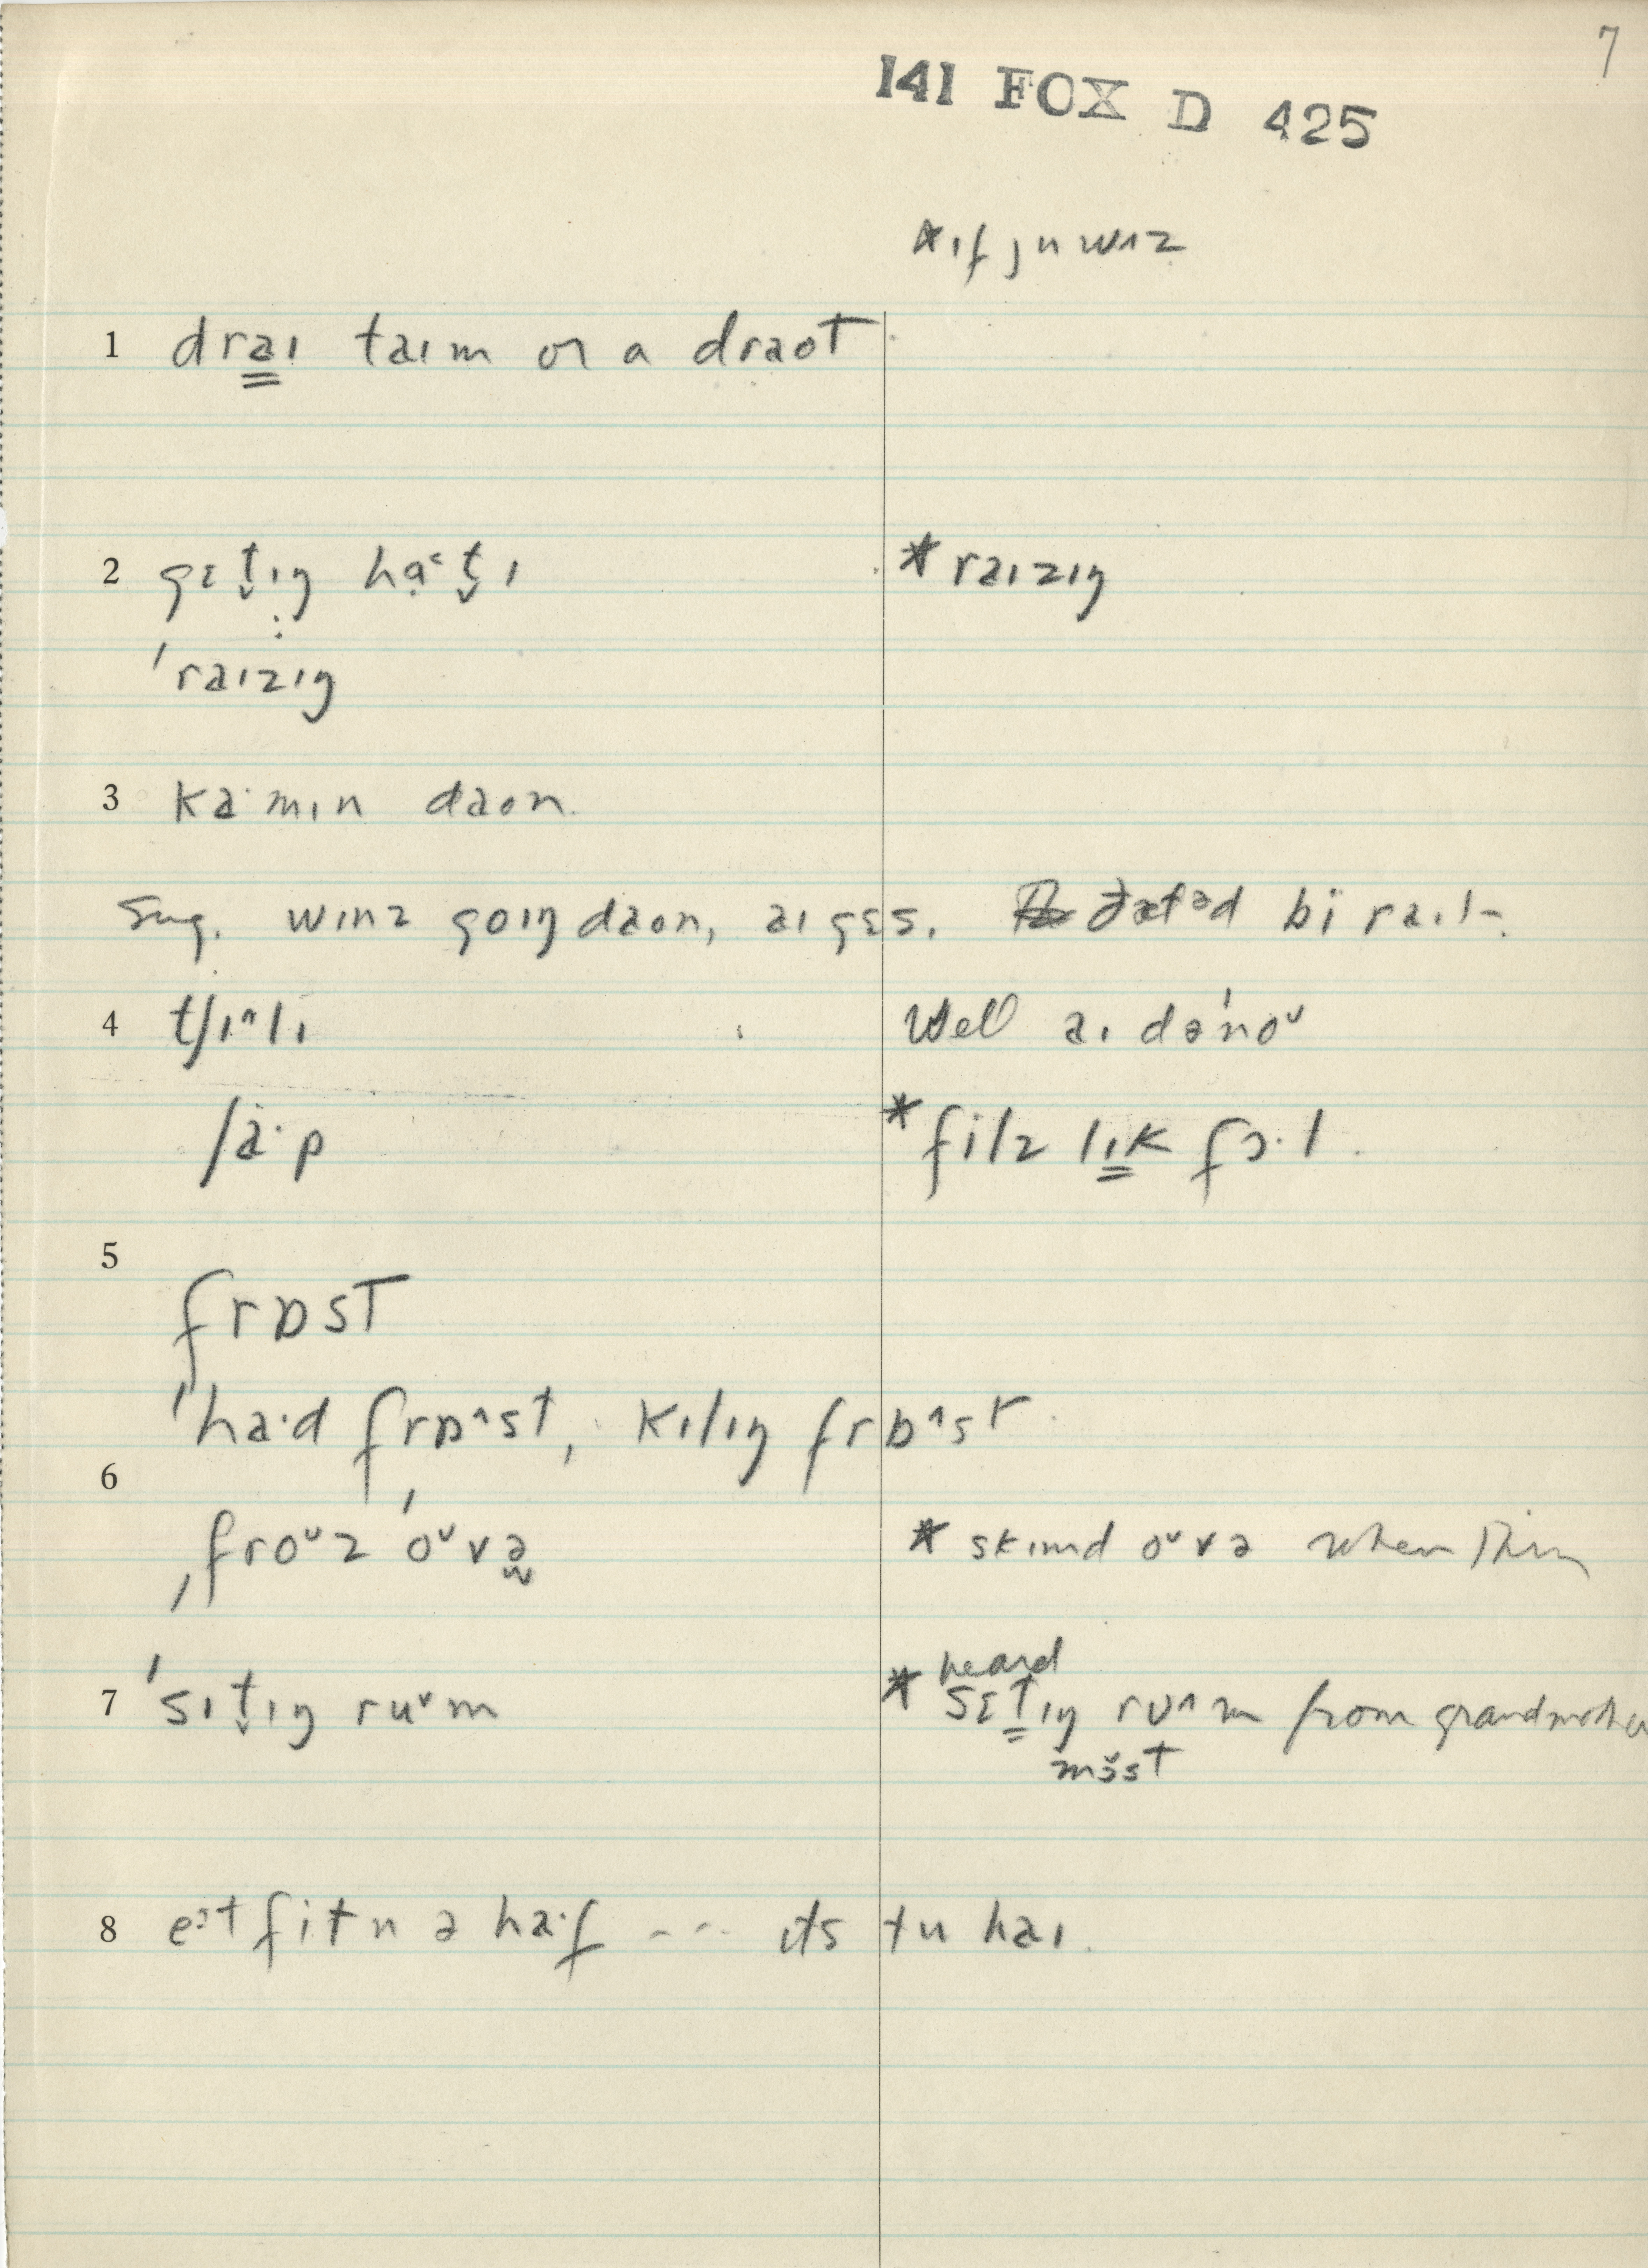 7
141 FOX D 425
*ɪf ju wʌz
1 draɪ taɪm or a draot
2 gɛt̬ɪŋ ha˂t̬ɪ *raɪzɪŋ
'raɪzɪŋ
3 ka·mɪn daon.
Sug. wɪnz goɪŋ daon, aɪ gɛs. ðætəd bi raɪt.
4 tʃɪ^lɪ Well aɪ də'noᵛ
ʃa·p *filz lɪk fɔ·l.
5
frɒst
'ha·d frɒ^st, kɪlɪŋ frɒ^st
6
ˌfroᵛz 'oᵛvə * skɪmd oᵛvə when thin
7 'sɪt̬ɪŋ ruᵛm * heard sɛtɪŋ rʊ^m from grandmother
most
8 eᵊt fit n ə ha·f --- ɪts tu haɪ.